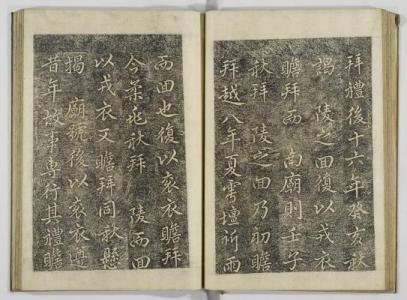 拜禮後十六年癸亥秋
謁 陵之回復以戎衣
瞻拜而 南廟則壬子
秋拜 陵之回乃初瞻
拜越八年夏雩壇祈雨
而回也復以袞衣瞻拜
今年非秋拜 陵而回
以戎衣又瞻拜同秋懸
揭 廟號後以袞衣遵
昔年故事專行其禮瞻